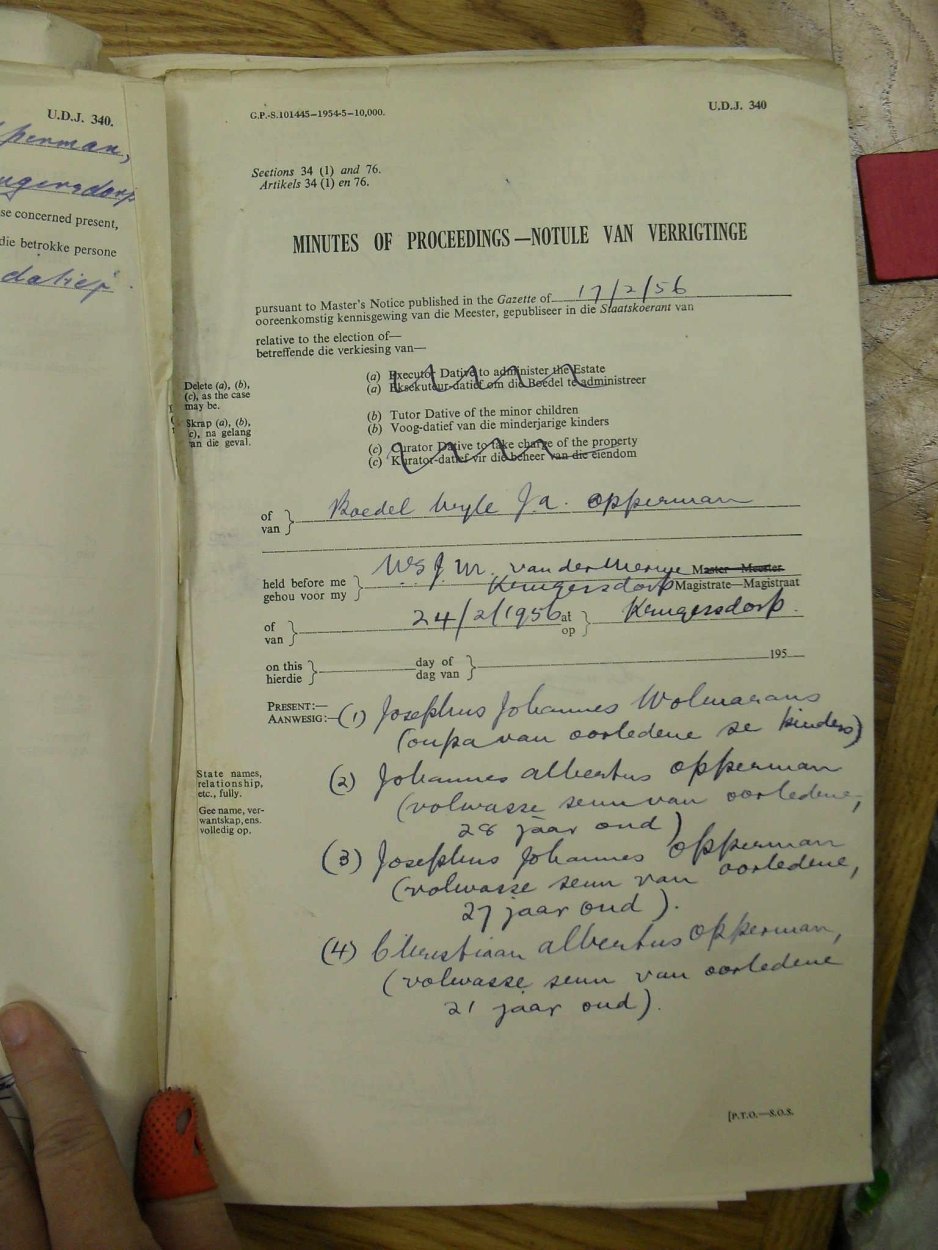 U.D.J. 340.
perman,
ugersdorp
se concerned present,
die betrokke persone
datief.
G.P.-S.101445—1954-5—10,000.
U.D.J. 340
Sections 34 (1) and 76.
Artikels 34 (1) en 76.
MINUTES OF PROCEEDINGS—NOTULE VAN VERRIGTINGE
pursuant to Master's Notice published in the Gazette of 17/2/56
ooreenkomstig kennisgewing van die Meester, gepubliseer in die Staatskoerant van
relative to the election of—
betreffende die verkiesing van—
Delete (a), (b),
(c), as the case
may be.
Skrap (a), (b),
(c), na gelang
van die geval.
(a) Executor Dative to administer the Estate
(a) Eksekuteur-datief om die Boedel te administreer
(b) Tutor Dative of the minor children
(b) Voog-datief van die minderjarige kinders
(c) Curator Dative to take charge of the property
(c) Kurator-datief vir die beheer van die eiendom
of
van } Boedel wyle J.A. Opperman
held before me
gehou voor my } van der Merwe Master—Meester
Krugersdorp Magistrate—Magistraat
of
van } 24/2/1956 at
op } Krugersdorp.
on this
hierdie } day of
dag van } 195
PRESENT:—
AANWESIG:—(1) Josephus Johannes Wolmarans
(oupa van oorledene se kinders)
State names,
relationship,
etc., fully.
Gee name, ver-
wantskap, ens.
volledig op.
(2) Johannes Albertus Opperman
(volwasse seun van oorledene,
28 jaar oud)
(3) Josephus Johannes Opperman
(volwasse seun van oorledene,
27 jaar oud).
(4) Christiaan Albertus Opperman,
(volwasse seun van oorledene
21 jaar oud).
[P.T.O.—S.O.S.